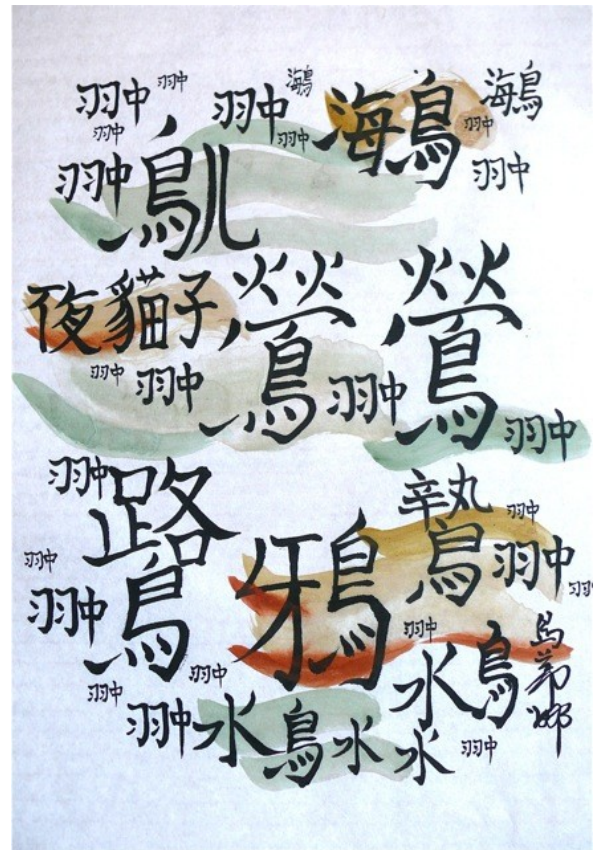 翀 翀 翀 海鳥 海鳥 海鳥
翀 翀 翀 翀
翀
夜貓子 鶯 鶯
翀 翀 翀 翀
翀 鷺 鷙 翀
翀 翀 鴉 翀 翀
翀 翀 水鳥
翀 翀 水鳥 水 水 翀